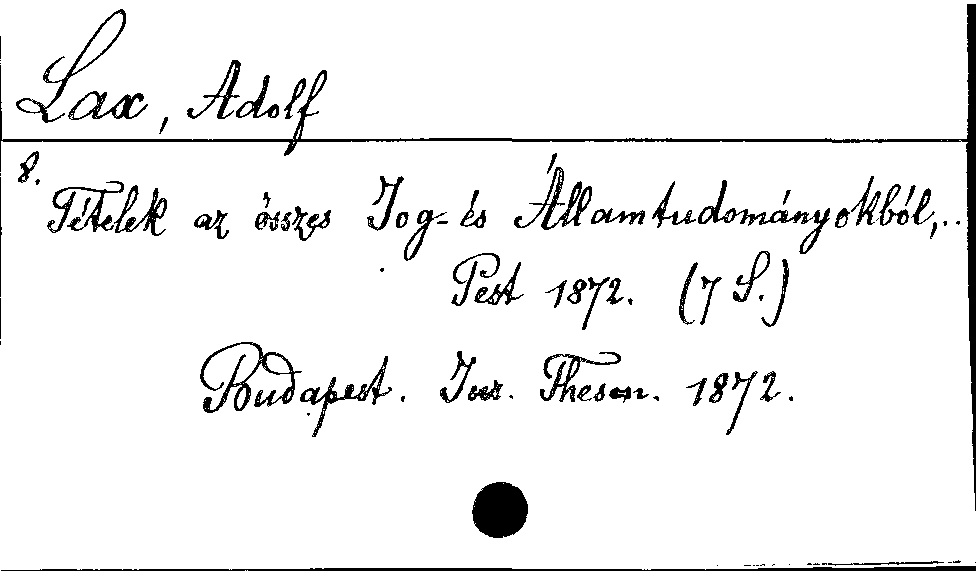 Lax, Adolf
8.
Tételek az összes Jog- és Államtudományokból,..
Pest 1872. (7 S.)
Budapest. Jur. Thesen. 1872.